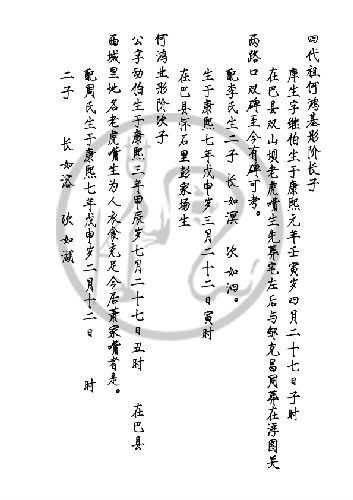 四代祖何鸿基彤阶长子
庠生字继伯生于康熙元年壬寅岁四月二十七日子时
在巴县双山坝老虎嘴生先葬宅左后与堅克昌同葬在浮图关
两路口双碑至今有碑可考。
配李氏生二子 长如溟 次如泗。
生于康熙七年戊申岁三月二十二日寅时
在巴县怀石里彭家扬生
何鸿业彤阶次子
公字勋伯生于康熙三年甲辰岁七月二十七日丑时 在巴县
西城里地名老虎嘴生为人衣食充足今居萧家嘴者是。
配周氏生于康熙七年戊申岁二月十二日 时
二子 长如洛 次如